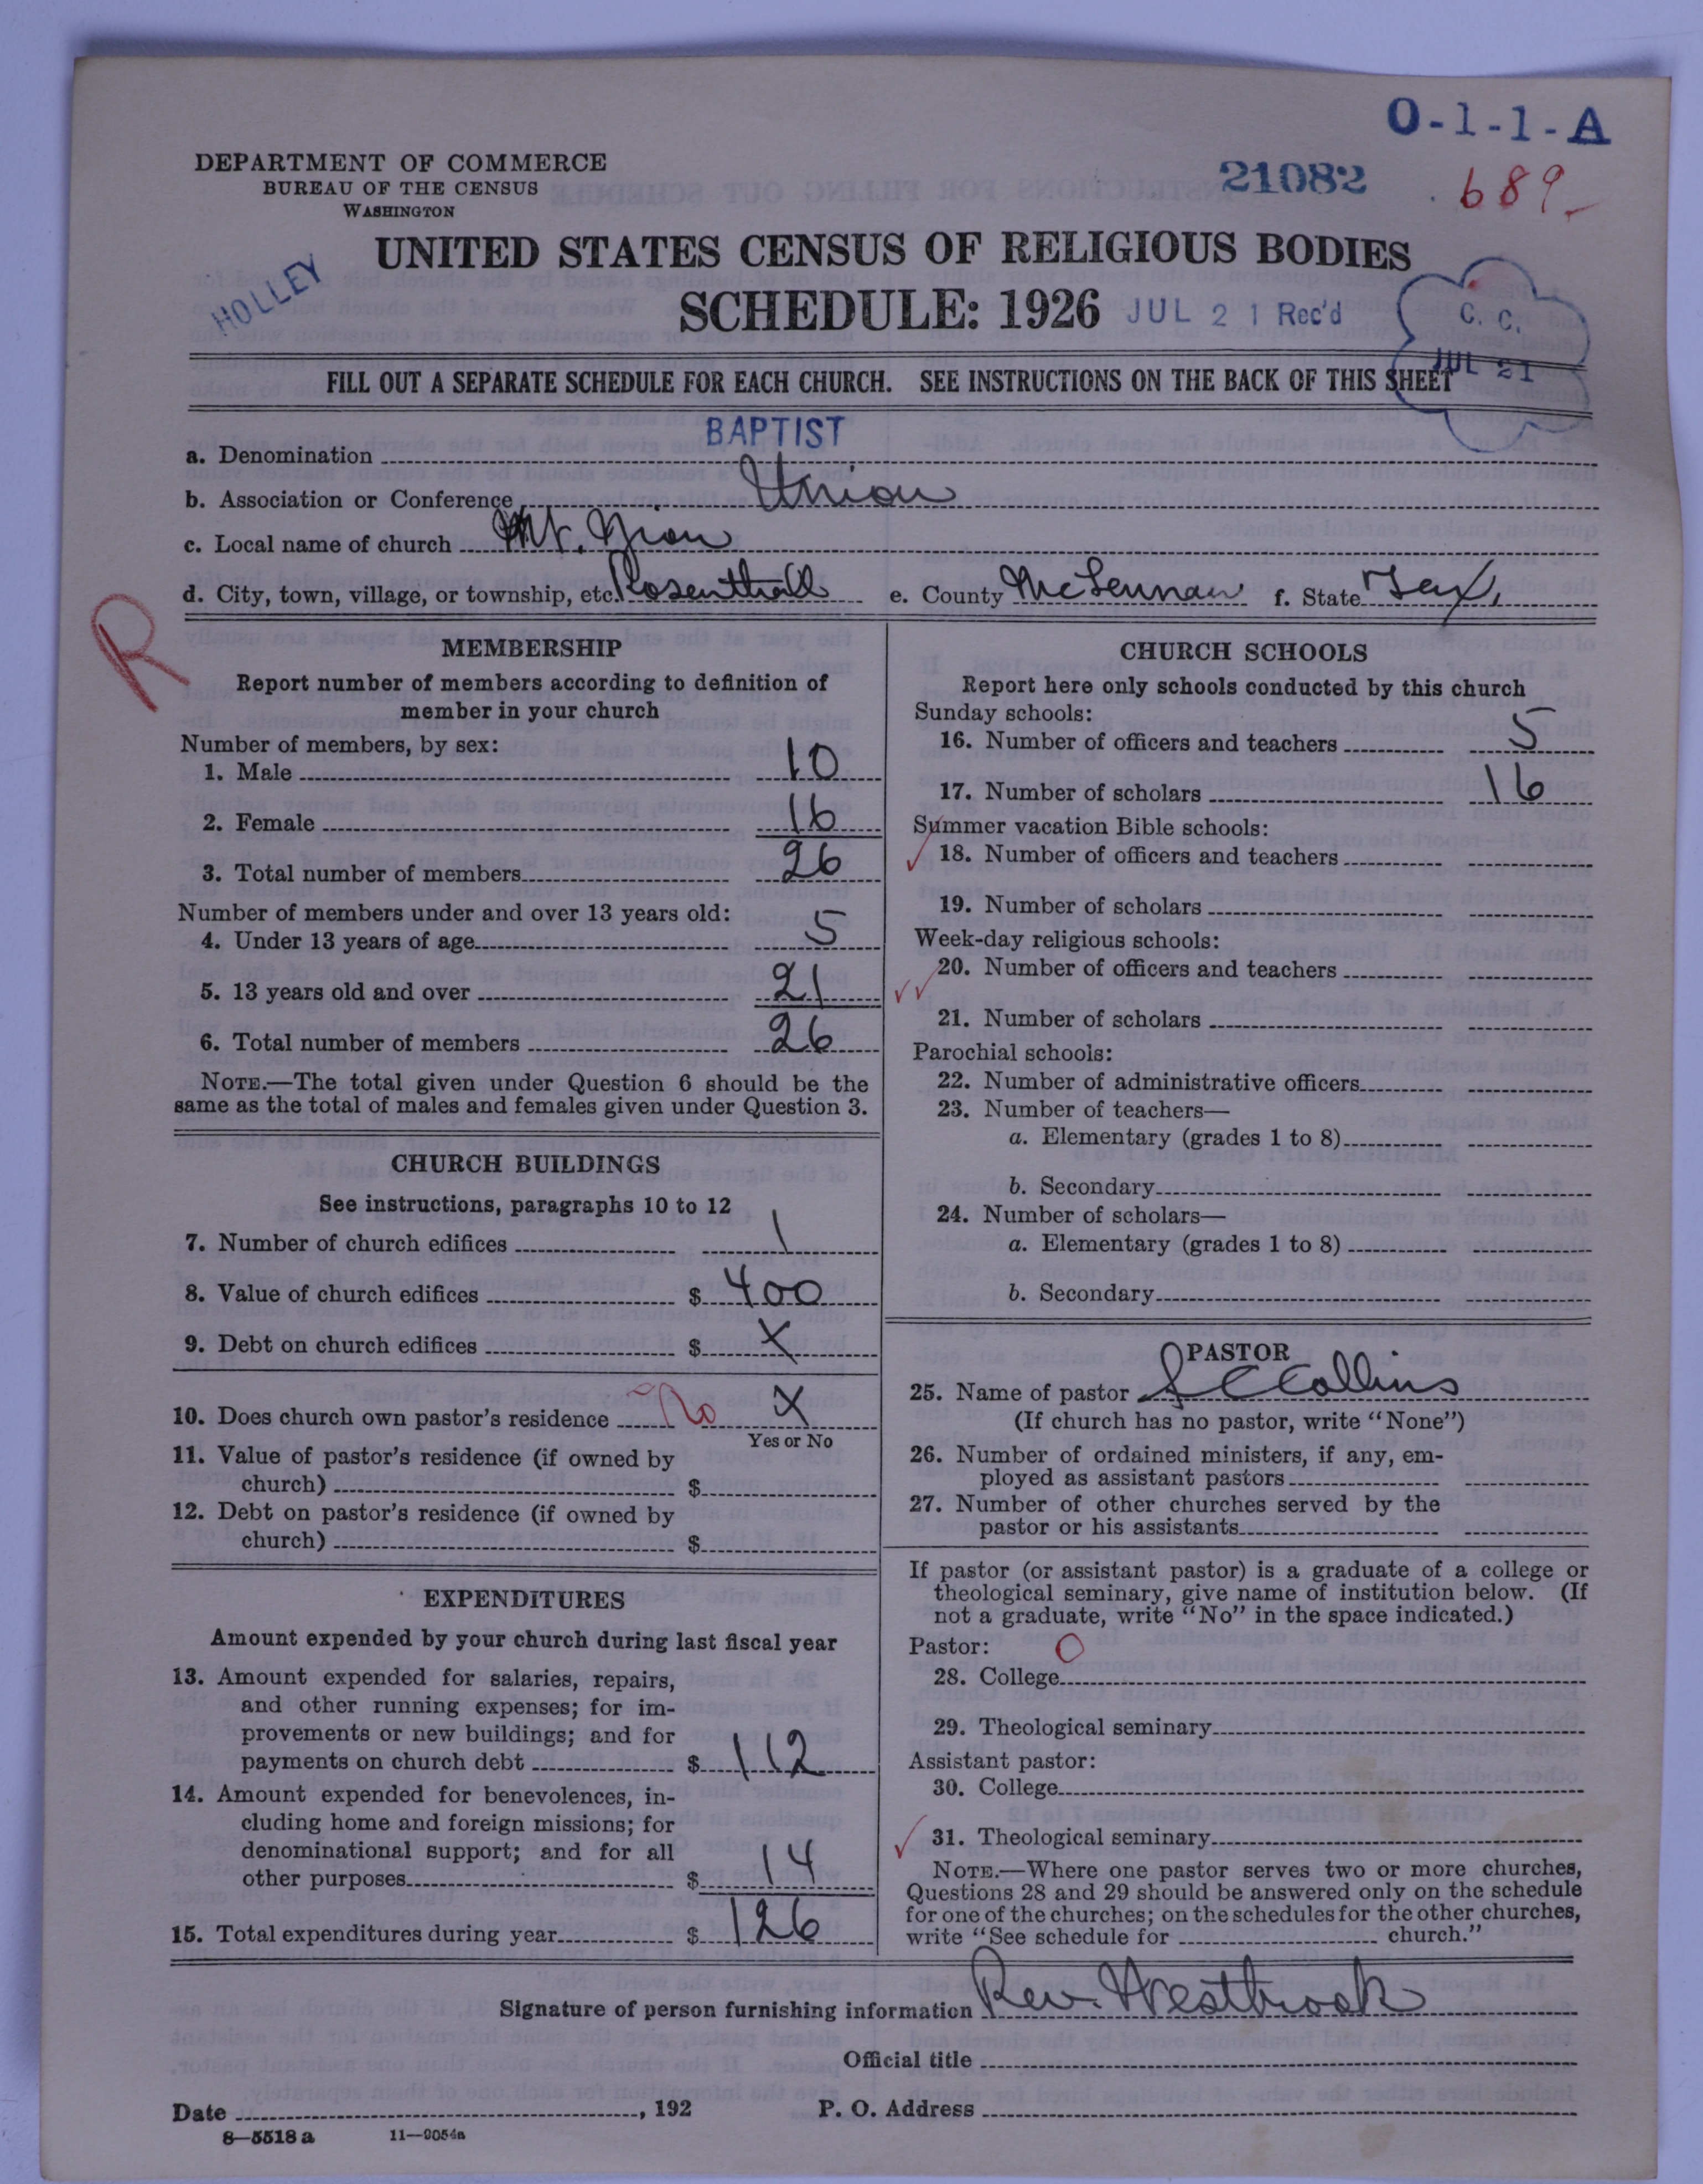 O-1-1-A
DEPARTMENT OF COMMERCE
BUREAU OF THE CENSUS
WASHINGTON
21082
689
UNITED STATES CENSUS OF RELIGIOUS BODIES
HOLLEY
SCHEDULE: 1926
JUL 21 Rec'd
C. C.
JUL 21
FILL OUT A SEPARATE SCHEDULE FOR EACH CHURCH. SEE INSTRUCTIONS ON THE BACK OF THIS SHEET
a. Denomination BAPTIST
b. Association or Conference Union
c. Local name of church Mt. Zion
d. City, town, village, or township, etc. Rosenthall e. County McLennan f. State Tex.
R
MEMBERSHIP
Report number of members according to definition of
member in your church
Number of members, by sex:
1. Male 10
2. Female 16
3. Total number of members 26
Number of members under and over 13 years old:
4. Under 13 years of age 5
5. 13 years old and over 21
6. Total number of members 26
NOTE.—The total given under Question 6 should be the
same as the total of males and females given under Question 3.
CHURCH BUILDINGS
See instructions, paragraphs 10 to 12
7. Number of church edifices 1
8. Value of church edifices $ 400
9. Debt on church edifices $ X
10. Does church own pastor's residence No X
Yes or No
11. Value of pastor's residence (if owned by
church) $
12. Debt on pastor's residence (if owned by
church) $
EXPENDITURES
Amount expended by your church during last fiscal year
13. Amount expended for salaries, repairs,
and other running expenses; for im-
provements or new buildings; and for
payments on church debt $ 112
14. Amount expended for benevolences, in-
cluding home and foreign missions; for
denominational support; and for all
other purposes $ 14
15. Total expenditures during year $ 126
CHURCH SCHOOLS
Report here only schools conducted by this church
Sunday schools:
16. Number of officers and teachers 5
17. Number of scholars 16
Summer vacation Bible schools:
18. Number of officers and teachers
19. Number of scholars
Week-day religious schools:
20. Number of officers and teachers
21. Number of scholars
Parochial schools:
22. Number of administrative officers
23. Number of teachers—
a. Elementary (grades 1 to 8)
b. Secondary
24. Number of scholars—
a. Elementary (grades 1 to 8)
b. Secondary
PASTOR
25. Name of pastor S C Collins
(If church has no pastor, write "None")
26. Number of ordained ministers, if any, em-
ployed as assistant pastors
27. Number of other churches served by the
pastor or his assistants
If pastor (or assistant pastor) is a graduate of a college or
theological seminary, give name of institution below. (If
not a graduate, write "No" in the space indicated.)
Pastor: O
28. College
29. Theological seminary
Assistant pastor:
30. College
31. Theological seminary
NOTE.—Where one pastor serves two or more churches,
Questions 28 and 29 should be answered only on the schedule
for one of the churches; on the schedules for the other churches,
write "See schedule for church."
Signature of person furnishing information Rev. Westbrook
Official title
Date , 192 P. O. Address
8—5518 a 11—9054a